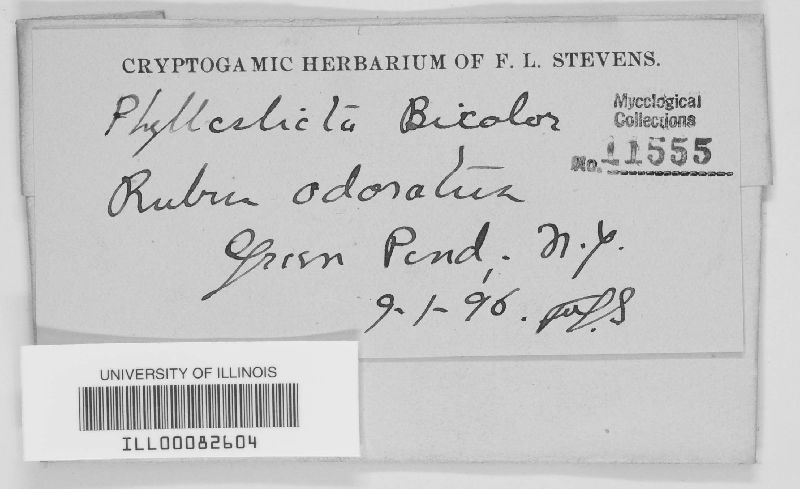 CRYPTOGAMIC HERBARIUM OF F. L. STEVENS.
Phyllosticta Bicolor
Mycological
Collections
No. 11555
Rubus odoratus
Green Pond, N.Y.
9-1-96. FLS
UNIVERSITY OF ILLINOIS
ILL00082604